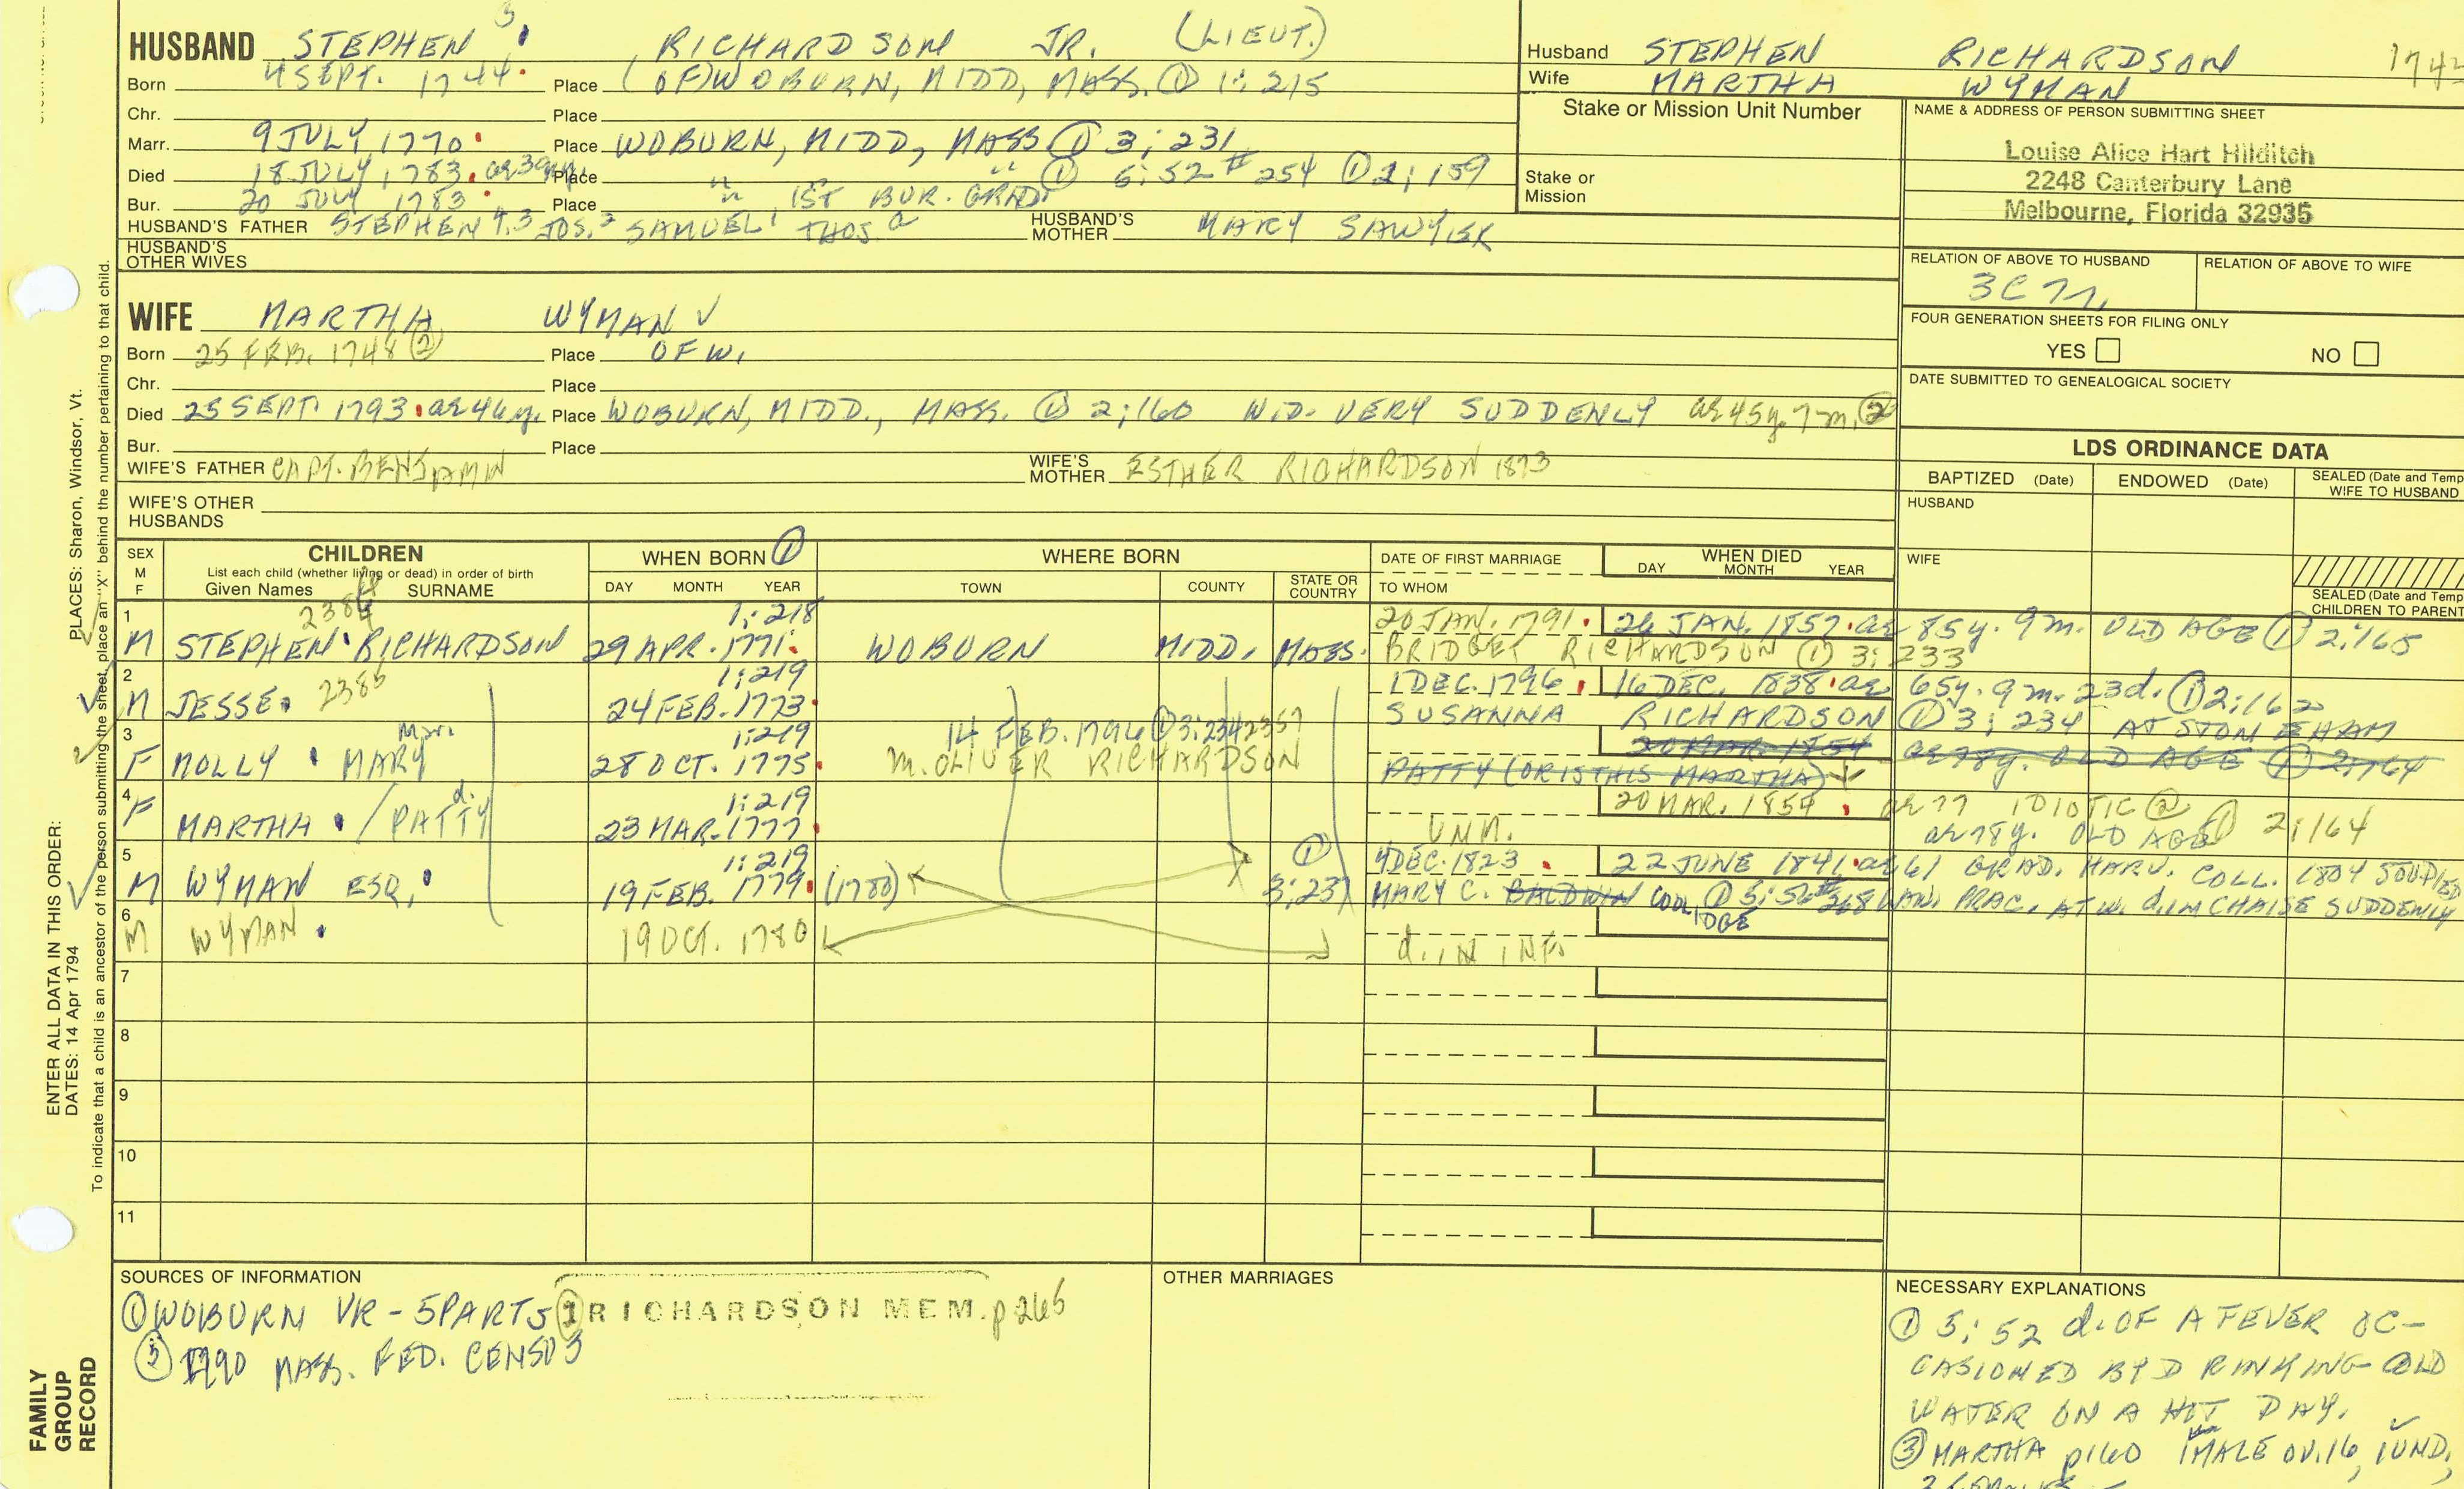 HUSBAND STEPHEN 5 RICHARDSON JR. (LIEUT.)
Born 4 SEPT. 1744. Place (OF) WOBURN, MIDD, MASS. ① 1:215
Chr. Place
Marr. 9 JULY 1770 Place WOBURN, MIDD, MASS ① 3:231
Died 18 JULY, 1783. Place " " " ① 5:52 #254 ① 2:159
Bur. 20 JULY 1783 Place " 1ST BUR. GRND.
HUSBAND'S FATHER STEPHEN 4,3 JOS.2 SAMUEL1 THOS. a HUSBAND'S MOTHER MARY SAWYER
HUSBAND'S OTHER WIVES
Husband STEPHEN RICHARDSON
Wife MARTHA WYMAN
Stake or Mission Unit Number
Stake or Mission
NAME & ADDRESS OF PERSON SUBMITTING SHEET
Louise Alice Hart Hilditch
2248 Canterbury Lane
Melbourne, Florida 32935
RELATION OF ABOVE TO HUSBAND
RELATION OF ABOVE TO WIFE
FOUR GENERATION SHEETS FOR FILING ONLY
YES NO
DATE SUBMITTED TO GENEALOGICAL SOCIETY
WIFE MARTHA WYMAN ✓
Born 25 FEB. 1748 ② Place OF W.
Chr. Place
Died 25 SEPT. 1793. ae 46y. Place WOBURN, MIDD., MASS. ① 2:160 WID. VERY SUDDENLY ae 45y. 7m. ②
Bur. Place
WIFE'S FATHER CAPT. BENJAMIN WIFE'S MOTHER ESTHER RICHARDSON 1893
WIFE'S OTHER HUSBANDS
LDS ORDINANCE DATA
BAPTIZED (Date) ENDOWED (Date) SEALED (Date and Temp
WIFE TO HUSBAND
HUSBAND
WIFE
SEALED (Date and Temp
CHILDREN TO PARENT
SEX M F
CHILDREN
List each child (whether living or dead) in order of birth
Given Names SURNAME
WHEN BORN ①
DAY MONTH YEAR
WHERE BORN
TOWN COUNTY STATE OR COUNTRY
DATE OF FIRST MARRIAGE
TO WHOM
WHEN DIED
DAY MONTH YEAR
1 1:218 20 JAN. 1791. 26 JAN. 1857. ae 85y. 9m. OLD AGE ① 2:165
M STEPHEN RICHARDSON 29 APR. 1771. WOBURN MIDD. MASS. BRIDGET RICHARDSON ① 3:233
2 2385 1:219 1 DEC. 1796. 16 DEC. 1838. ae 65y. 9m. 23d. ① 2:162
M JESSE 24 FEB. 1773 SUSANNA RICHARDSON ① 3:234 AT STONEHAM
3 1:219 14 FEB. 1796 ① 3:234 2357 20 MAR. 1854 ae 78y. OLD AGE ① 2:164
F MOLLY MARY 28 OCT. 1775. m. OLIVER RICHARDSON PATTY (OR IS THIS MARTHA)
4 1:219 20 MAR. 1854. ae 77 IDIOTIC ②
F MARTHA / PATTY 23 MAR. 1777 UNM. ae 78y. OLD AGE ① 2:164
5 1:219 ① 4 DEC. 1823. 22 JUNE 1841. ae 61 GRAD. HARV. COLL. 1804 STUDIED
M WYMAN ESQ. 19 FEB. 1779. (1780) 3:231 MARY C. BALDWIN COOLIDGE ① 5:56 #268 LAW, PRAC. AT W. d. IN CHAISE SUDDENLY
6
M WYMAN 19 OCT. 1780 d. IN INF.
7
8
9
10
11
SOURCES OF INFORMATION
① WOBURN VR - 5 PARTS RICHARDSON MEM. p265
③ 1790 MASS. FED. CENSUS
OTHER MARRIAGES
NECESSARY EXPLANATIONS
① 5:52 d. OF A FEVER OC-
CASIONED BY DRINKING COLD
WATER ON A HOT DAY.
③ MARTHA p160 1 MALE OV. 16, 1 UND,
ENTER ALL DATA IN THIS ORDER:
DATES: 14 Apr 1794 PLACES: Sharon, Windsor, Vt.
To indicate that a child is an ancestor of the person submitting the sheet, place an "X" behind the number pertaining to that child.
FAMILY GROUP RECORD